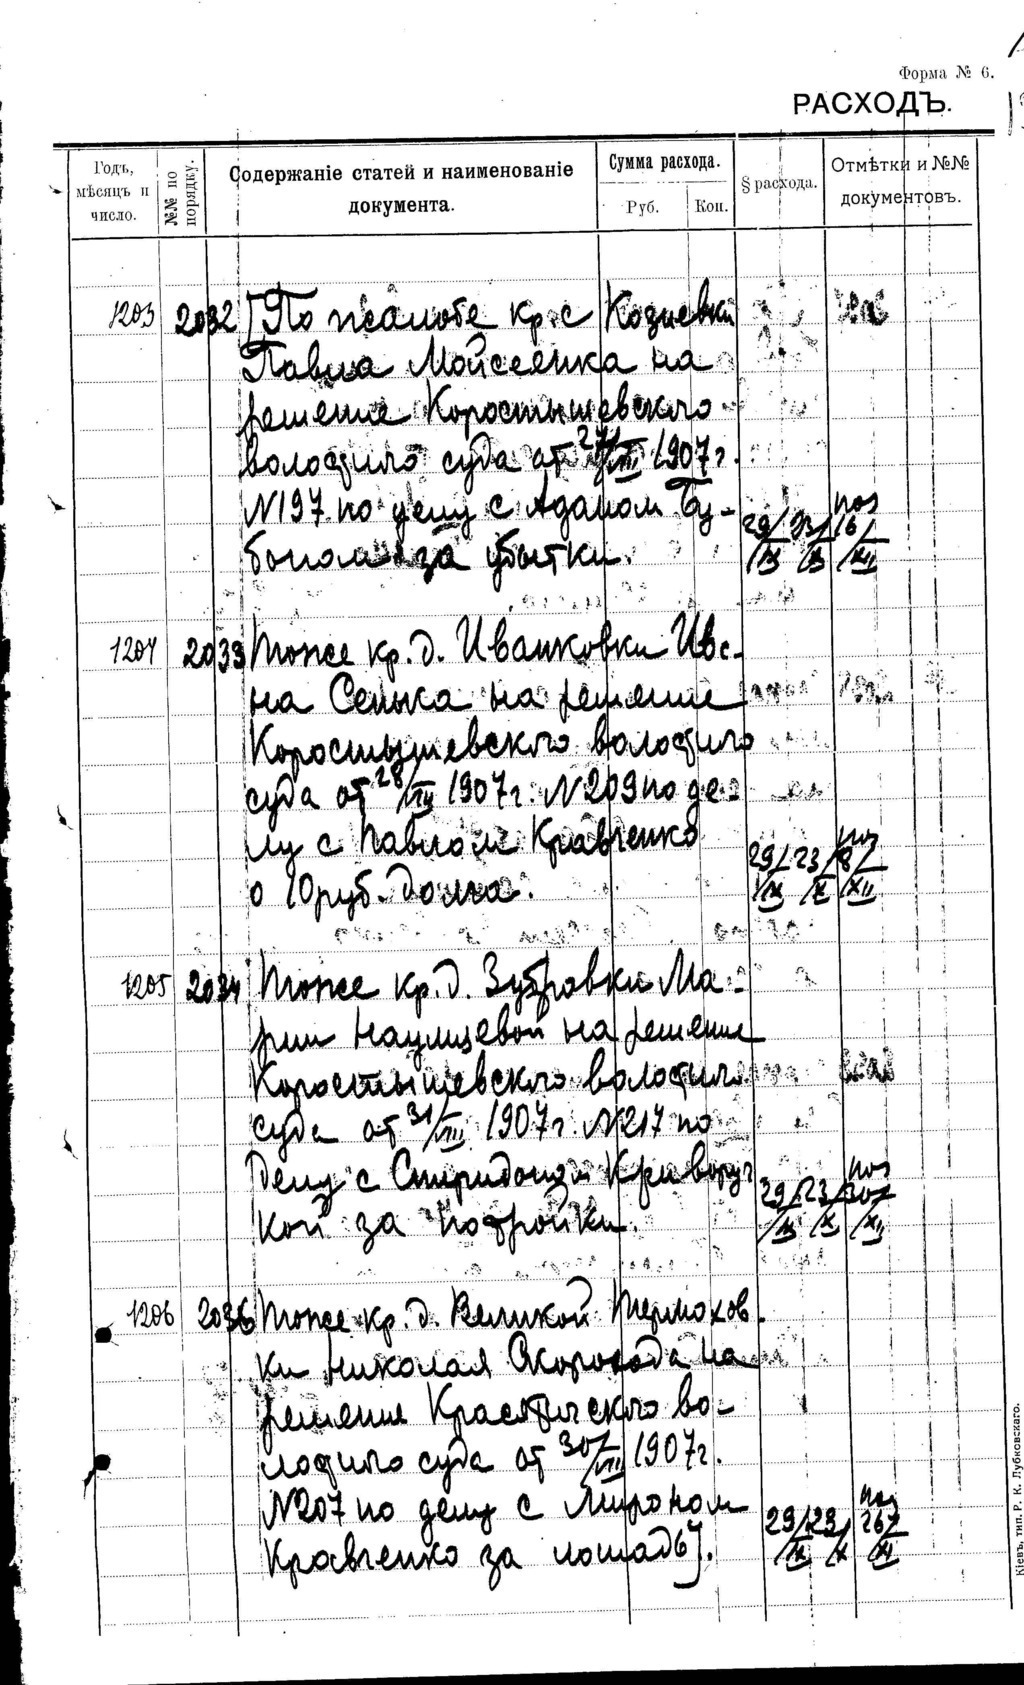 Форма № 6.
РАСХОДЪ.
Годъ, мѣсяцъ и число.
№№ по порядку.
Содержаніе статей и наименованіе документа.
Сумма расхода.
Руб.
Коп.
§ расхода.
Отмѣтки и №№ документовъ.
1203 2032 По жалобе кр. с Козиевки
Павла Мойсеенка на
решение Коростышевского
волостного суда от 27/VIII 1907 г.
N197 по делу с Адамом Бу-
боном за убытки. 29/IX 23/X 16/XII
1204 2033 Тоже кр. д. Иванковки Ива-
на Сенька на решение
Коростышевского волостного
суда от 28/VIII 1907 г. N209 по де-
лу с Павлом Кравченко
о 10 руб. долга. 29/IX 23/X 18/XII
1205 2034 Тоже кр. д. Зубровки Ма-
рии Наумцевой на решение
Коростышевского волостного
суда от 31/VIII 1907 г. N217 по
делу с Спиридоном Криворуч
кой за постройки. 29/IX 23/X 30/XII
1206 2036 Тоже кр. д. Великой Термохов-
ки Николая Скорохода на
решение во-
лостного суда от 30/VII 1907 г.
N207 по делу с Мироном
Кравченко за лошадь]. 29/IX 23/X 267/XI
Кіевъ, тип. Р. К. Лубковскаго.